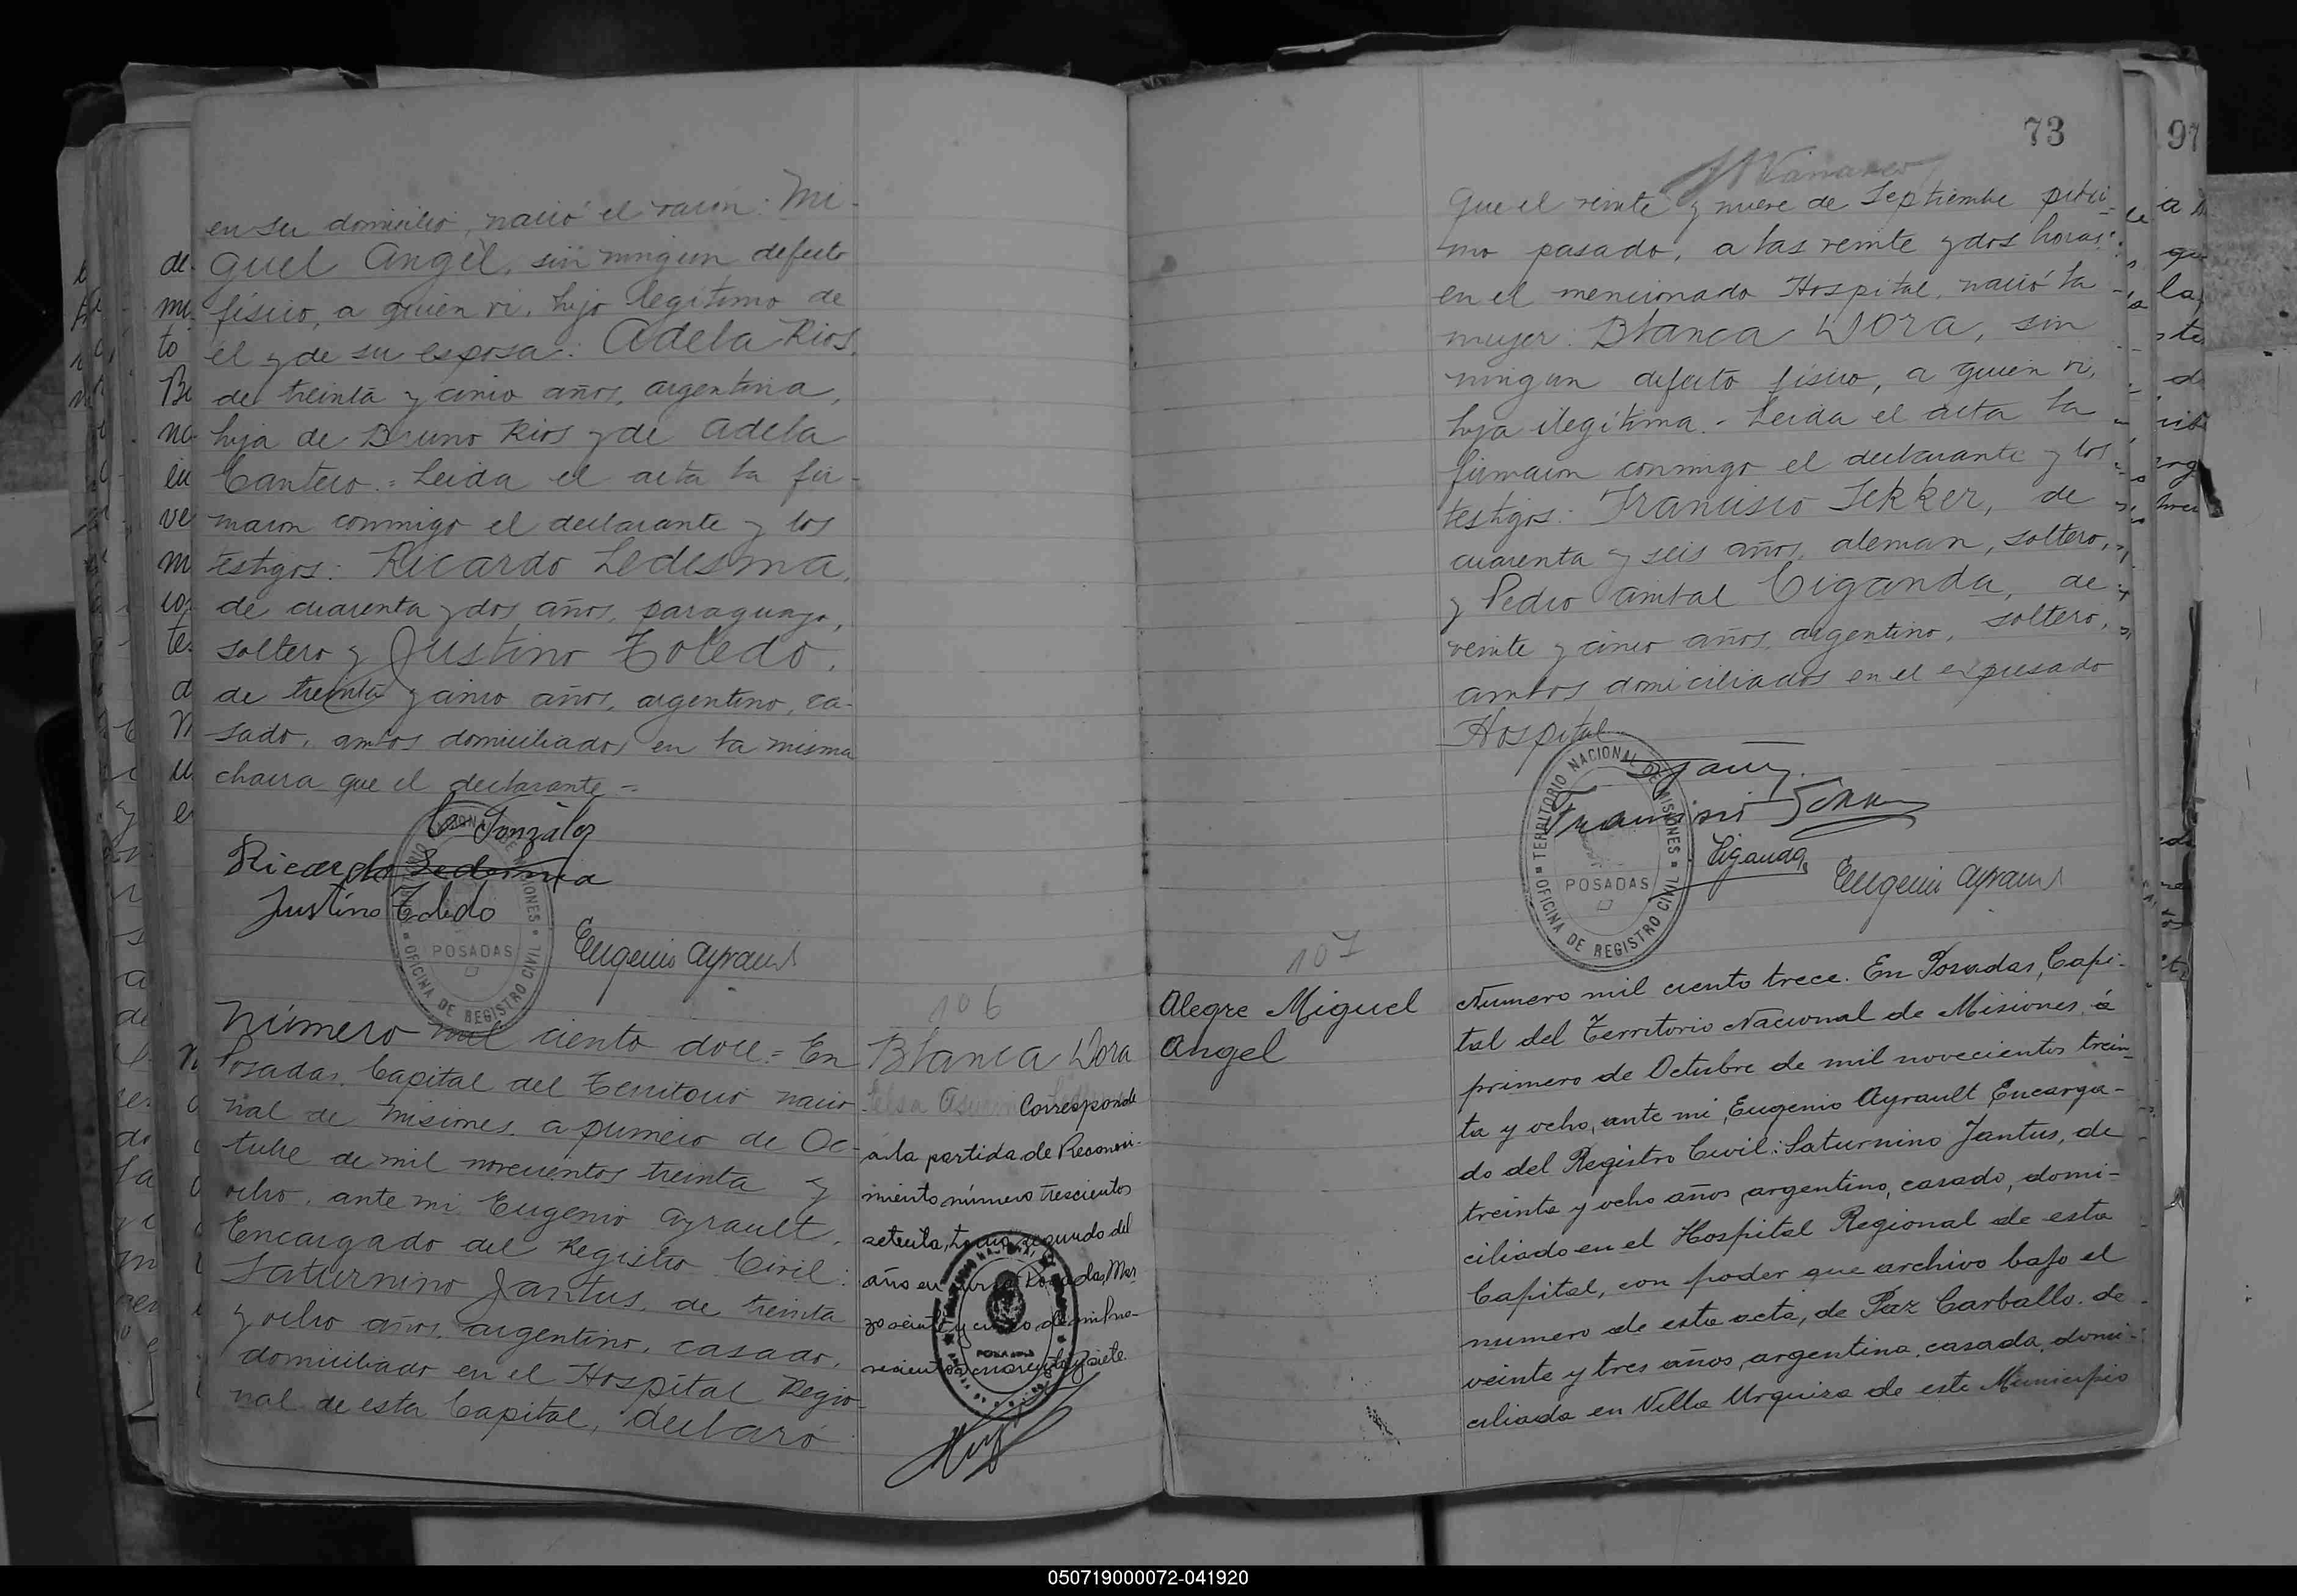 en su domicilio, nació el varón: Mi-
guel Angel, sin ningun defecto
físico, a quien vi, hijo legítimo de
él y de su esposa: Adela Rios,
de treinta y cinco años, argentina,
hija de Bruno Rios y de Adela
Cantero.= Leida el acta la fir-
maron conmigo el declarante y los
testigos: Ricardo Ledesma,
de cuarenta y dos años, paraguayo,
soltero y Justino Toledo,
de treinta y cinco años, argentino, ca-
sado, ambos domiciliados en la misma
chacra que el declarante.=
Gonzalez
Ricardo Ledesma
Justino Toledo
Eugenio Ayrault
POSADAS
OFICINA DE REGISTRO CIVIL
Número mil ciento doce.= En
Posadas, Capital del Territorio nacio
nal de Misiones, a primero de Oc-
tubre de mil novecientos treinta y
ocho, ante mi, Eugenio Ayrault,
Encargado del Registro Civil:
Saturnino Jantus, de treinta
y ocho años, argentino, casado,
domiciliado en el Hospital Regio-
nal de esta Capital, declaró:
106
Blanca Dora
Corresponde
a la partida de Reconoci-
miento número trescientos
setenta, tomo segundo del
año en curso. Posadas, Mar
zo veinte y cinco de mil no-
vecientos cuarenta y siete.
73
97
Que el veinte y nueve de Septiembre próxi-
mo pasado, a las veinte y dos horas,
en el mencionado Hospital, nació la
mujer: Blanca Dora, sin
ningun defecto físico, a quien vi,
hija ilegítima.- Leida el acta la
firmaron conmigo el declarante y los
testigos: Francisco Sekker, de
cuarenta y seis años, aleman, soltero,
y Pedro Anibal Ciganda, de
veinte y cinco años, argentino, soltero,
ambos domiciliados en el expresado
Hospital
TERRITORIO NACIONAL DE MISIONES
POSADAS
OFICINA DE REGISTRO CIVIL
Ciganda
Eugenio Ayrault
107
Alegre Miguel
Angel
Numero mil ciento trece. En Posadas, Capi-
tal del Territorio Nacional de Misiones, á
primero de Octubre de mil novecientos trein-
ta y ocho, ante mi, Eugenio Ayrault Encarga-
do del Registro Civil: Saturnino Jantus, de
treinta y ocho años, argentino, casado, domi-
ciliado en el Hospital Regional de esta
Capital, con poder que archivo bajo el
numero de esta acta, de Paz Carballo, de
veinte y tres años, argentina, casada, domi-
ciliada en Villa Urquiza de este Municipio
050719000072-041920